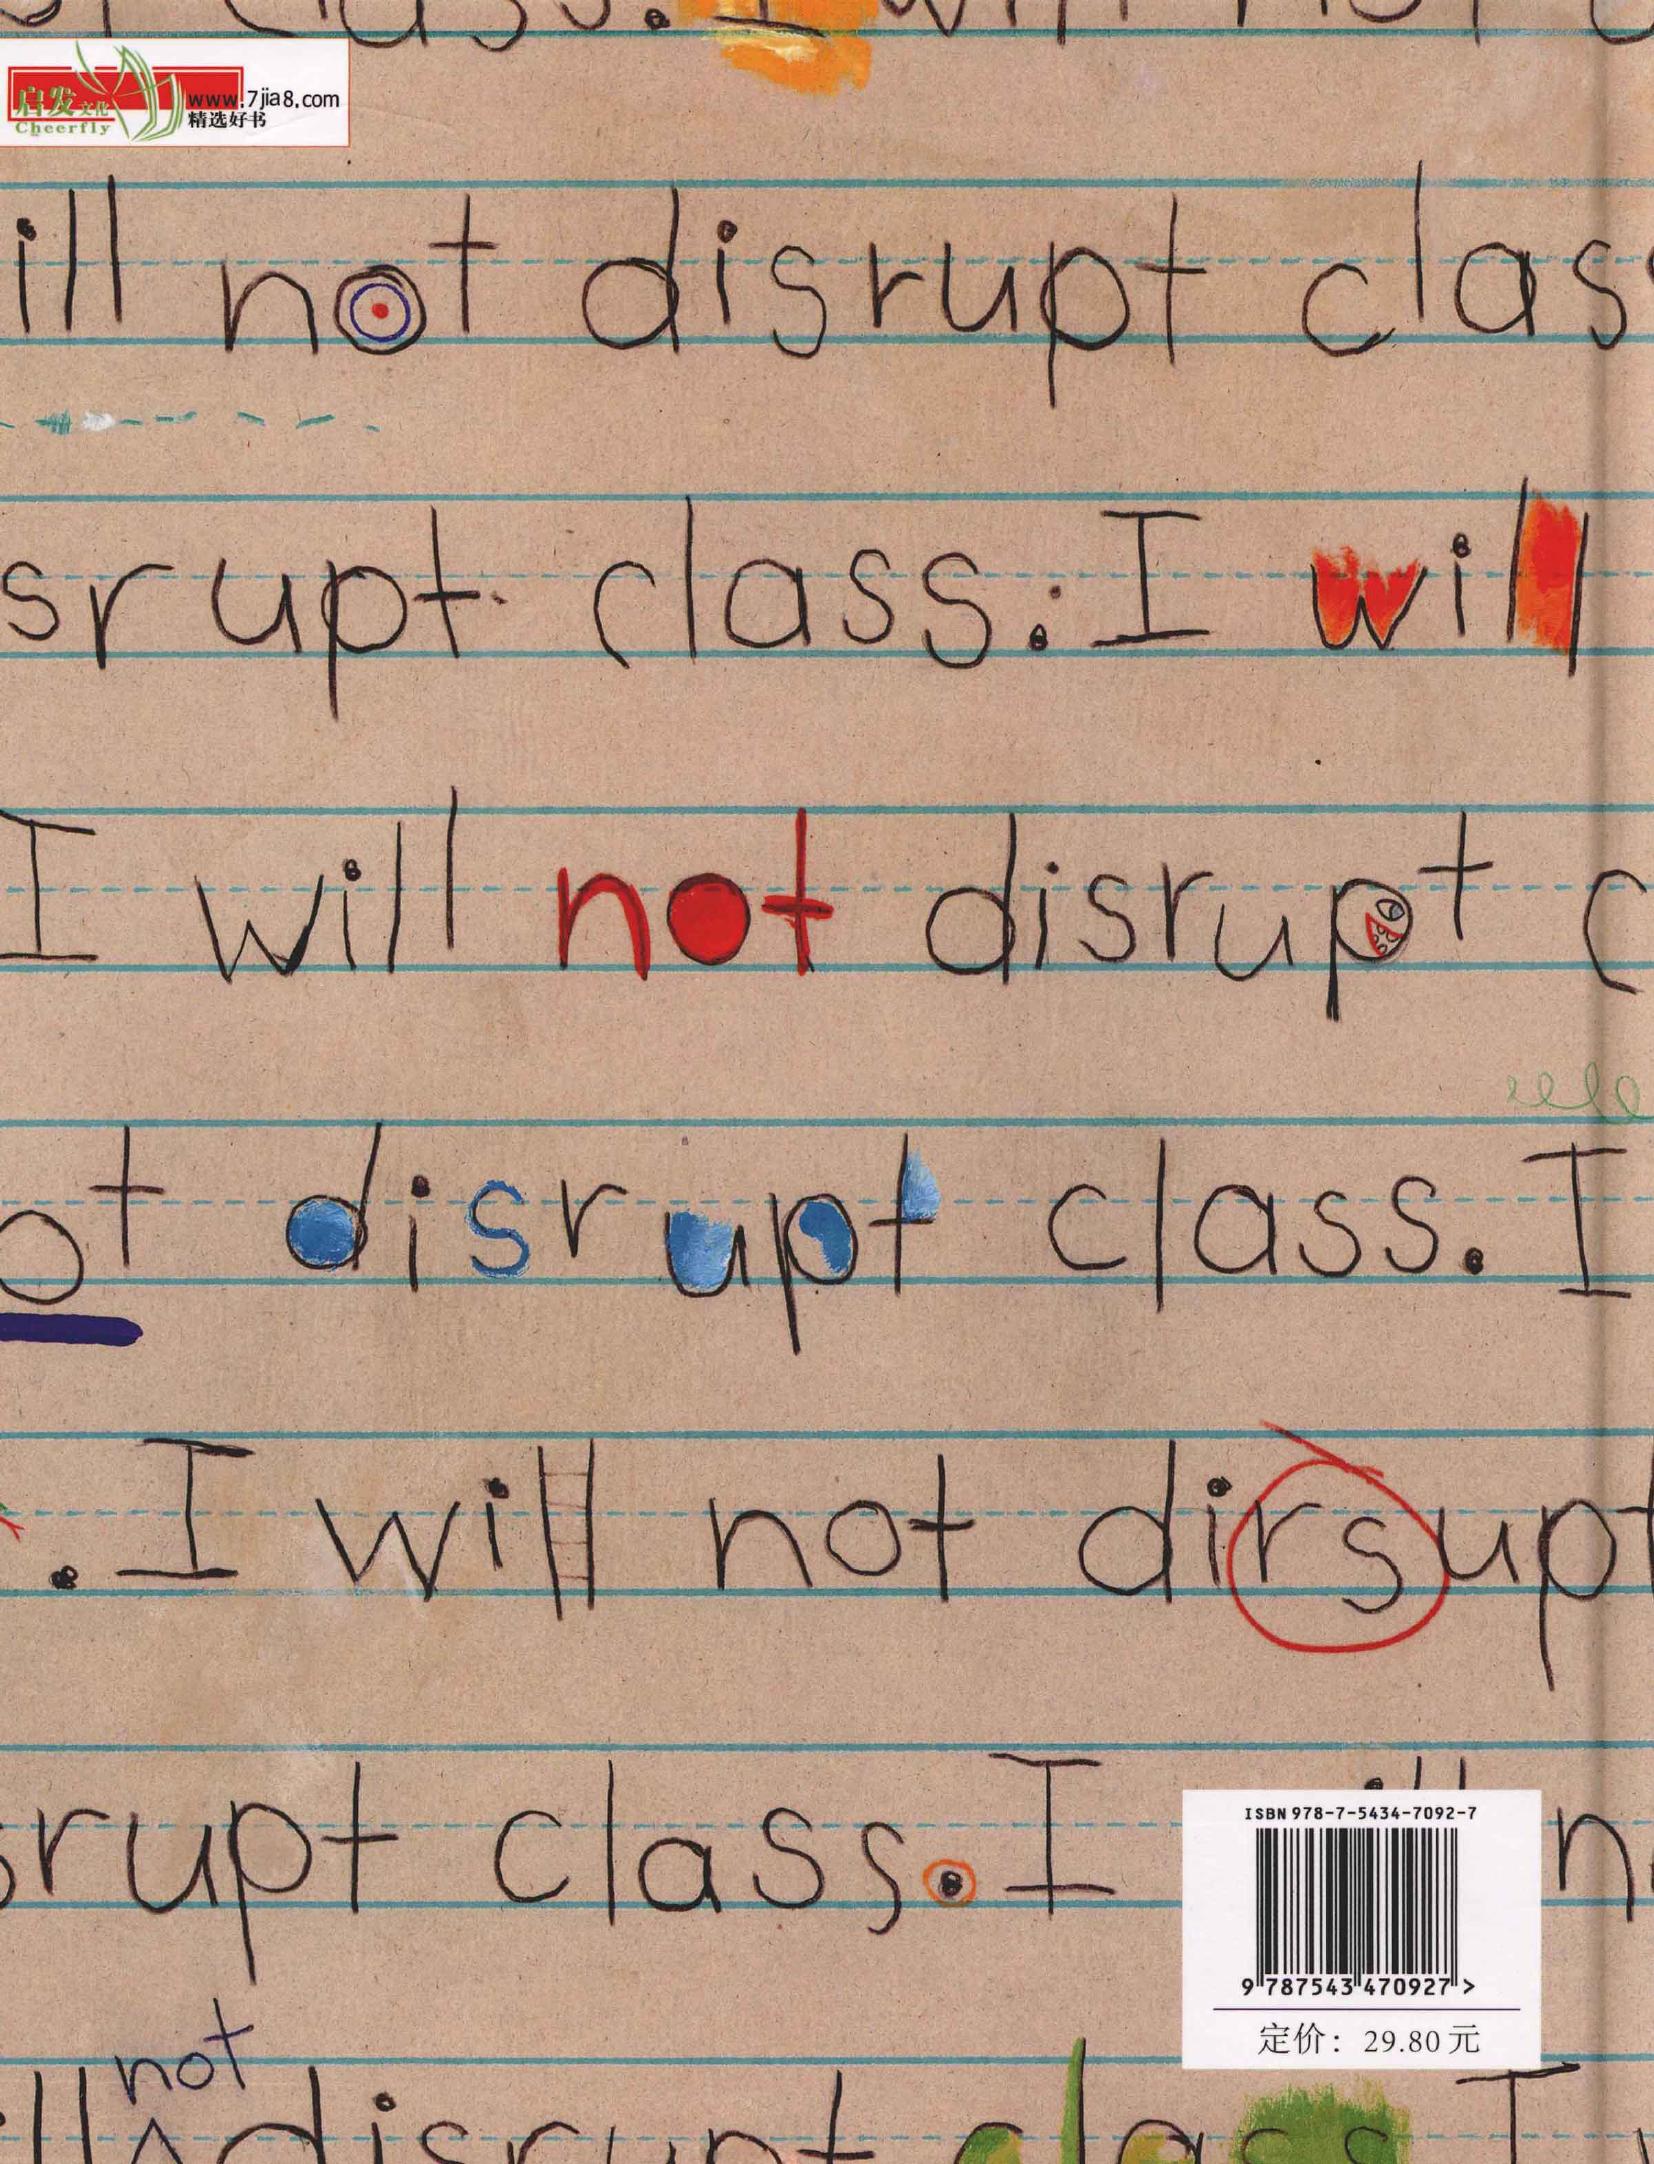 class. I will not
启发文化
Cheerfly
www.7jia8.com
精选好书
ill not disrupt clas
srupt class. I will
I will not disrupt c
ot disrupt class. I
. I will not dirsupt
srupt class. I ill n
ISBN 978-7-5434-7092-7
9 787543 470927 >
定价: 29.80元
not
ill ^ disrupt class I